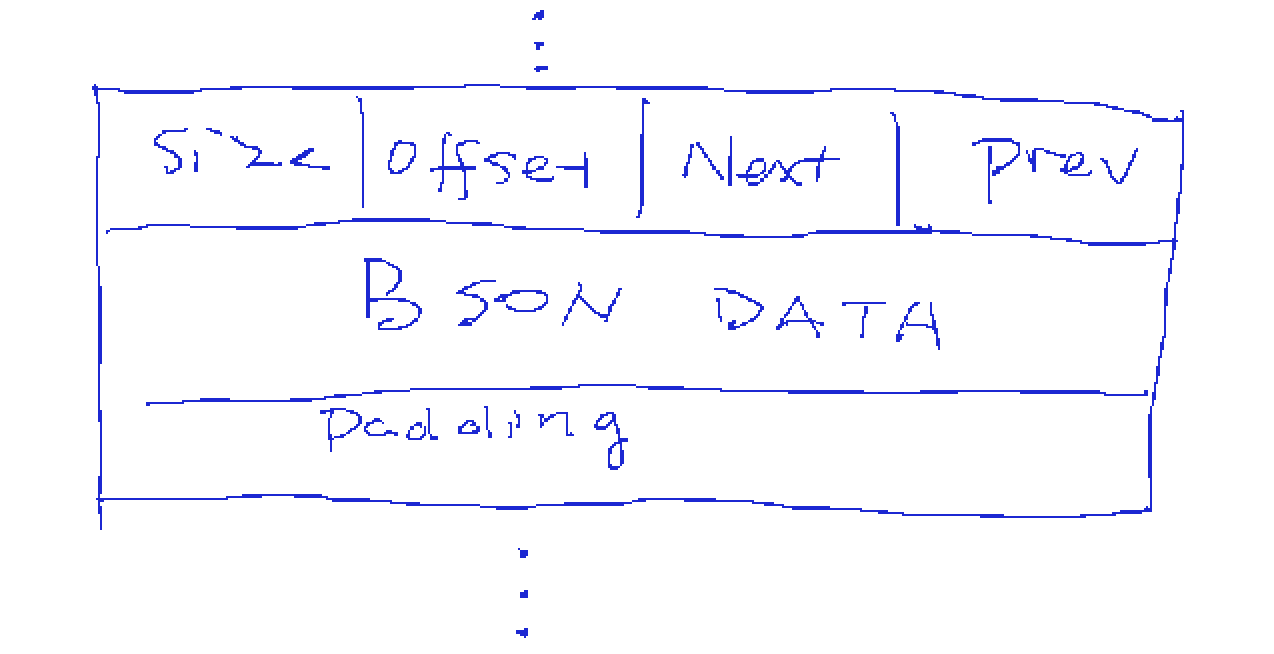 Size Offset Next Prev
BSON DATA
Padding